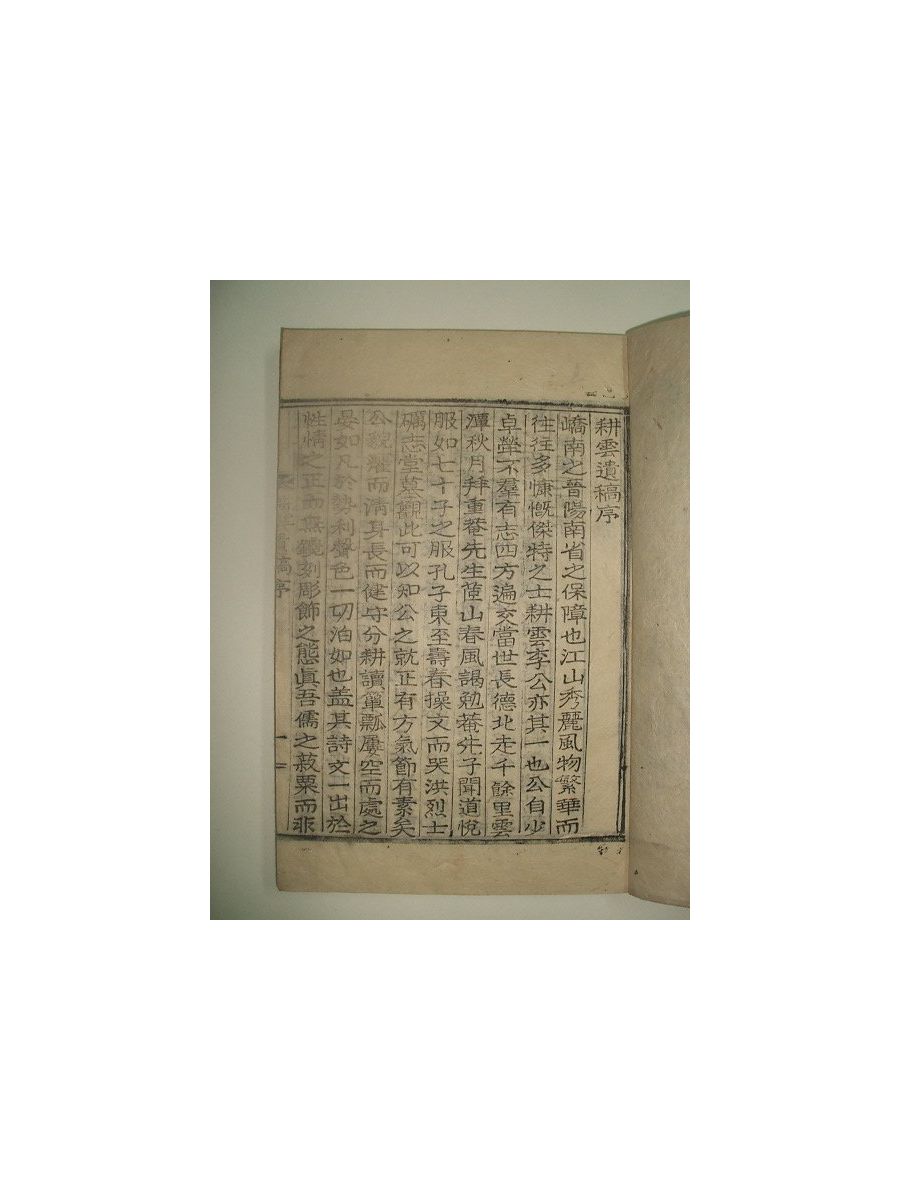 耕雲遺稿序
嶠南之晉陽南省之保障也江山秀麗風物繁華而
往往多慷慨傑特之士耕雲李公亦其一也公自少
卓犖不羣有志四方遍交當世長德北走千餘里雲
潭秋月拜重菴先生萑山春風謁勉菴先子聞道悅
服如七十子之服孔子東至壽春操文而哭洪烈士
礪志堂墓觀此可以知公之就正有方氣節有素矣
公貌癯而淸身長而健守分耕讀簞瓢屢空而處之
晏如凡於勢利聲色一切泊如也盖其詩文一出於
性情之正而無鐫刻彫飾之態眞吾儒之菽粟而非
稿序